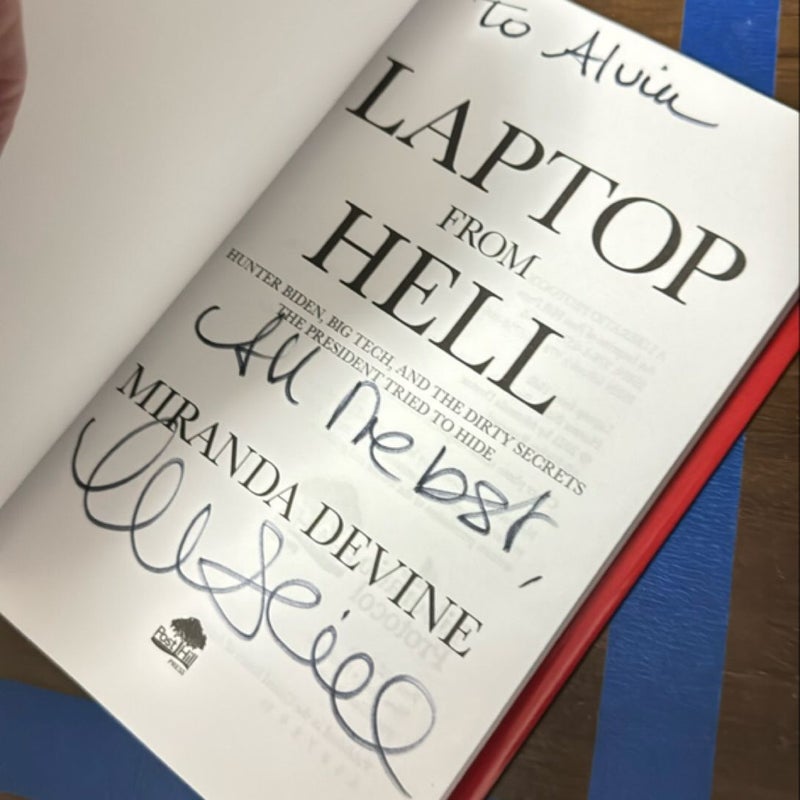 To Alvin
LAPTOP
FROM
HELL
HUNTER BIDEN, BIG TECH, AND THE DIRTY SECRETS
THE PRESIDENT TRIED TO HIDE
All the best,
MIRANDA DEVINE
Post Hill
PRESS
Protocol